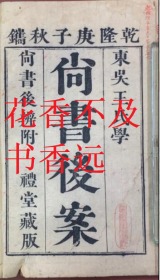 乾隆庚子秋鐫
東吳王氏學
尚書後案
尚書後辨附
禮堂藏版
花香不及
书香远